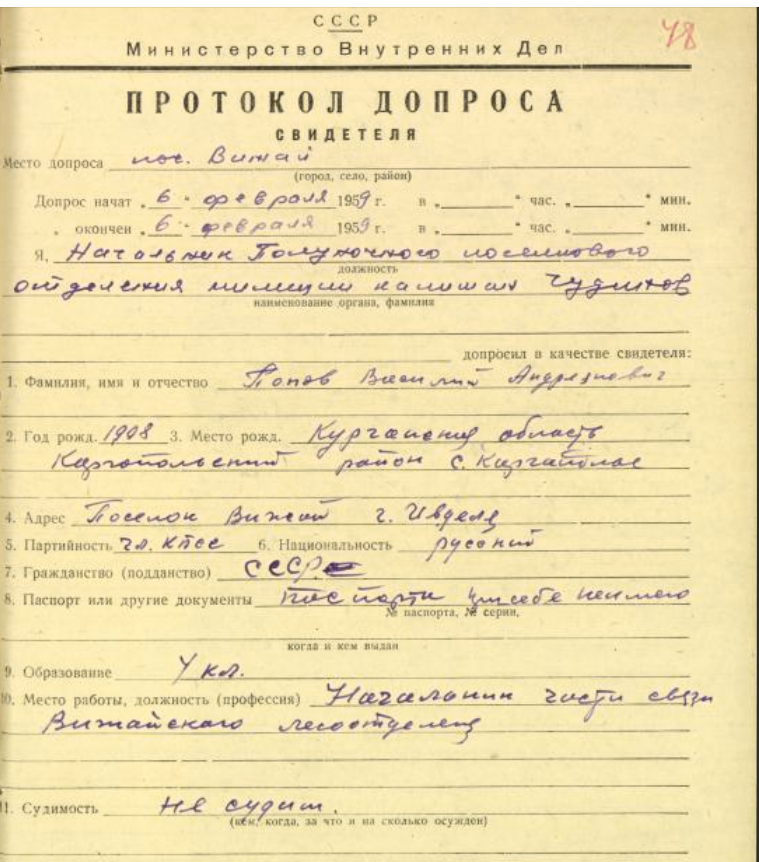 СССР
48
Министерство Внутренних Дел
ПРОТОКОЛ ДОПРОСА
СВИДЕТЕЛЯ
Место допроса пос. Вижай
(город, село, район)
Допрос начат „ 6 “ февраля 1959 г. в „ “ час. „ “ мин.
„ окончен „ 6 “ февраля 1959 г. в „ “ час. „ “ мин.
Я, Начальник Полуночного поселкового
должность
отделения милиции капитан Чудинов
наименование органа, фамилия
допросил в качестве свидетеля:
1. Фамилия, имя и отчество Попов Василий Андреяневич
2. Год рожд. 1908 3. Место рожд. Курганская область
Каргопольский район с.
4. Адрес Поселок Вижай г. Ивделя
5. Партийность чл. КПСС 6. Национальность русский
7. Гражданство (подданство) СССР
8. Паспорт или другие документы паспорта при себе неимею
№ паспорта, № серии,
когда и кем выдан
9. Образование 4 кл.
10. Место работы, должность (профессия) Начальник части связи
Вижайского лесоотделения
11. Судимость Не судим.
(кем, когда, за что и на сколько осужден)